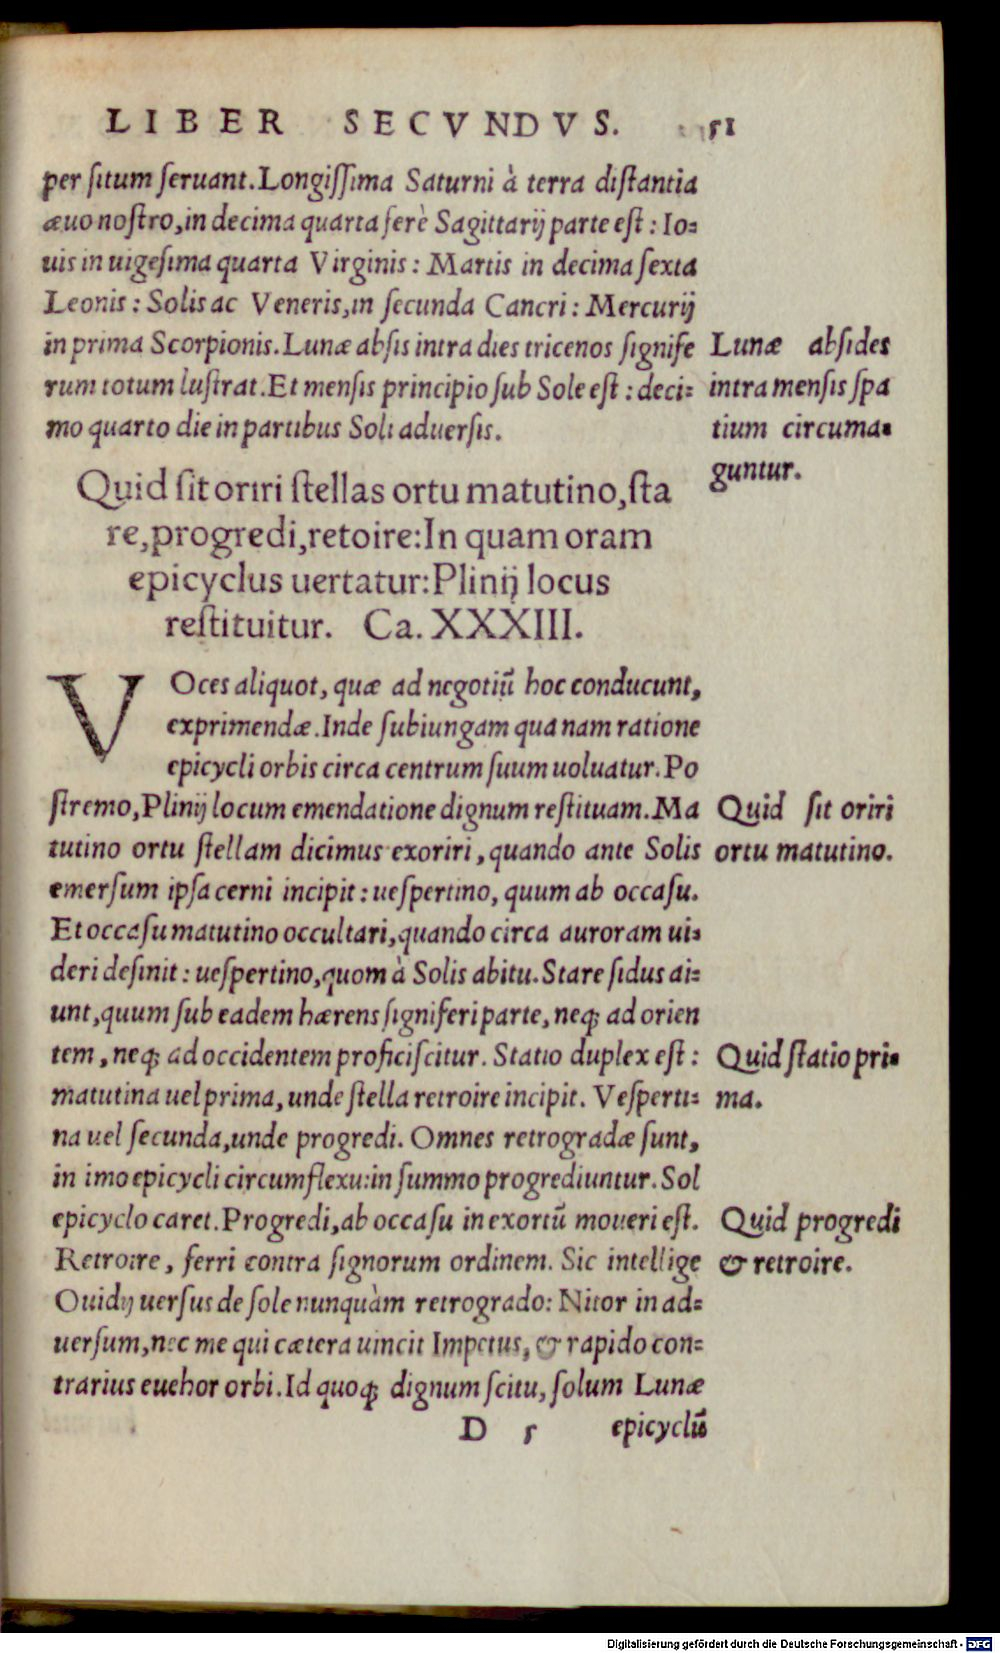 LIBER SECVNDVS. 51
per situm seruant. Longissima Saturni à terra distantia
æuo nostro, in decima quarta ferè Sagittarij parte est: Io-
uis in uigesima quarta Virginis: Martis in decima sexta
Leonis: Solis ac Veneris, in secunda Cancri: Mercurij
in prima Scorpionis. Lunæ absis intra dies tricenos signife
rum totum lustrat. Et mensis principio sub Sole est: deci-
mo quarto die in partibus Soli aduersis.
Lunæ absides
intra mensis spa
tium circuma-
guntur.
Quid sit oriri stellas ortu matutino, sta
re, progredi, retoire: In quam oram
epicyclus uertatur: Plinij locus
restituitur. Ca. XXXIII.
VOces aliquot, quæ ad negotiũ hoc conducunt,
exprimendæ. Inde subiungam qua nam ratione
epicycli orbis circa centrum suum uoluatur. Po
stremo, Plinij locum emendatione dignum restituam. Ma
tutino ortu stellam dicimus exoriri, quando ante Solis
emersum ipsa cerni incipit: uespertino, quum ab occasu.
Et occasu matutino occultari, quando circa auroram ui-
deri desinit: uespertino, quom à Solis abitu. Stare sidus ai-
unt, quum sub eadem hærens signiferi parte, neq; ad orien
tem, neq; ad occidentem proficiscitur. Statio duplex est:
matutina uel prima, unde stella retroire incipit. Vesperti-
na uel secunda, unde progredi. Omnes retrogradæ sunt,
in imo epicycli circumflexu: in summo progrediuntur. Sol
epicyclo caret. Progredi, ab occasu in exortũ moueri est.
Retroire, ferri contra signorum ordinem. Sic intellige
Ouidij uersus de sole nunquàm retrogrado: Nitor in ad-
uersum, nec me qui cætera uincit Impetus, & rapido con-
trarius euehor orbi. Id quoq; dignum scitu, solum Lunæ
Quid sit oriri
ortu matutino.
Quid statio pri-
ma.
Quid progredi
& retroire.
D 5 epicyclũ
Digitalisierung gefördert durch die Deutsche Forschungsgemeinschaft - DFG